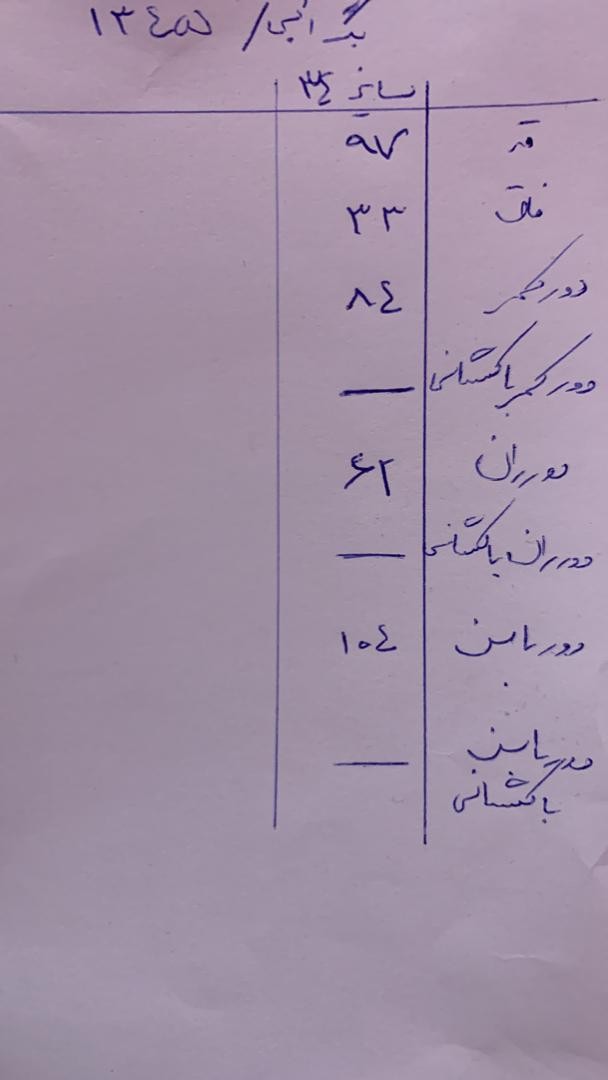 بگ آبی / ۱۳۴۵۵
سایز ۳۴
قد ۹۷
فاق ۳۳
دور کمر ۸۴
دور کمر با کشسانی —
دور ران ۶۲
دور ران با کشسانی —
دور باسن ۱۰۴
دور باسن —
با کشسانی